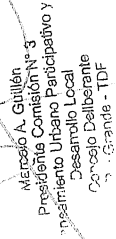 Marcelo A. Guillén
Presidente Comisión Nº 3
neamiento Urbano Participativo y
Desarrollo Local
Concejo Deliberante
Grande - TDF